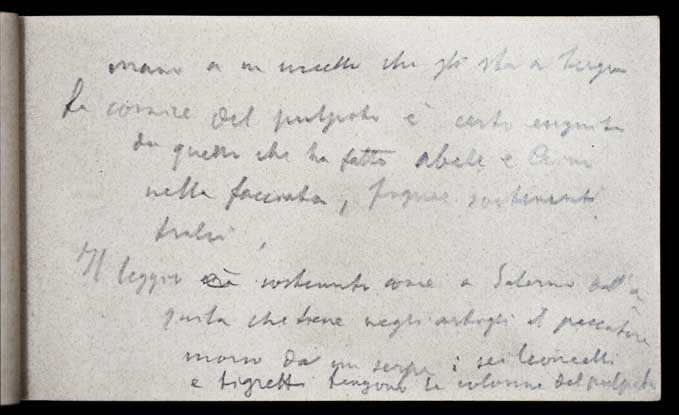 mano a un uccello che gli sta a tergo
La cornice del pulpito è certo eseguita
da quello che ha fatto Abele e Caino
nella facciata, figure sostenenti
tralci,
Il leggio è sostenuto come a Salerno dall'a
quila che tiene negli artigli il peccatore
morso da un serpe; sei leoncelli
e tigretti tengono le colonne del pulpito